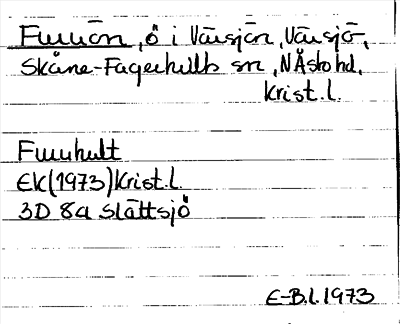 Furuön, ö i Värsjön, Värsjö,
Skåne-Fagerhults sn, NÅsbo hd,
Krist.l.
Furuhult
EK(1973)Krist.l.
3D 8a Slättsjö
E-B.L.1973